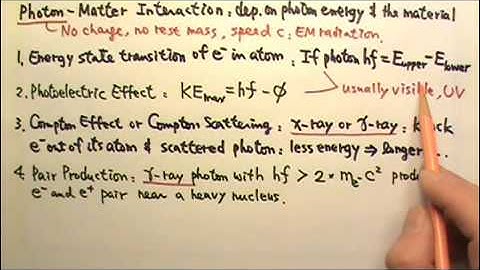 Photon-Matter Interaction: dep. on photon energy & the material
No charge, no rest mass, speed c: EM radiation.
1. Energy state transition of e⁻ in atom: If photon hf = E_upper - E_lower
usually visible, UV
2. Photoelectric Effect: KE_max = hf - ϕ
3. Compton Effect or Compton Scattering: x-ray or γ-ray: knock
e⁻ out of its atom & scattered photon: less energy ⇒ longer
4. Pair Production: γ-ray photon with hf > 2 * m_e-c²
e⁻ and e⁺ pair near a heavy nucleus.